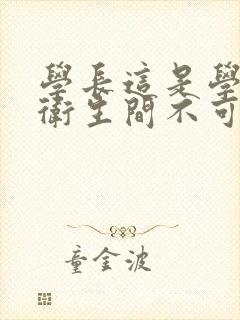 學長這是學
衛生間不可
童金波